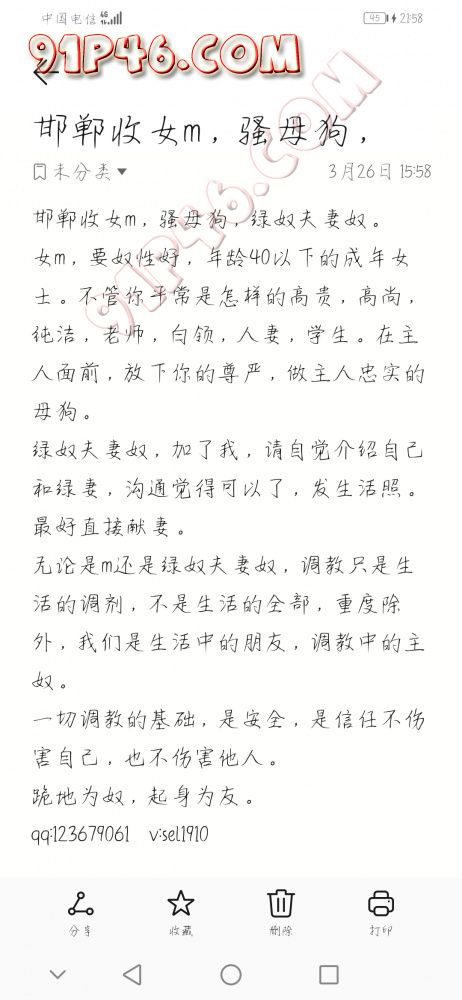 中国电信 4G 45 21:58
91P46.COM
邯郸收女m，骚母狗，
未分类 3月26日 15:58
邯郸收女m，骚母狗，绿奴夫妻奴。
女m，要奴性好，年龄40以下的成年女
士。不管你平常是怎样的高贵，高尚，
纯洁，老师，白领，人妻，学生。在主
人面前，放下你的尊严，做主人忠实的
母狗。
绿奴夫妻奴，加了我，请自觉介绍自己
和绿妻，沟通觉得可以了，发生活照。
最好直接献妻。
无论是m还是绿奴夫妻奴，调教只是生
活的调剂，不是生活的全部，重度除
外，我们是生活中的朋友，调教中的主
奴。
一切调教的基础，是安全，是信任不伤
害自己，也不伤害他人。
跪地为奴，起身为友。
qq:123679061 v:sel1910
91P46.COM
分享 收藏 删除 打印